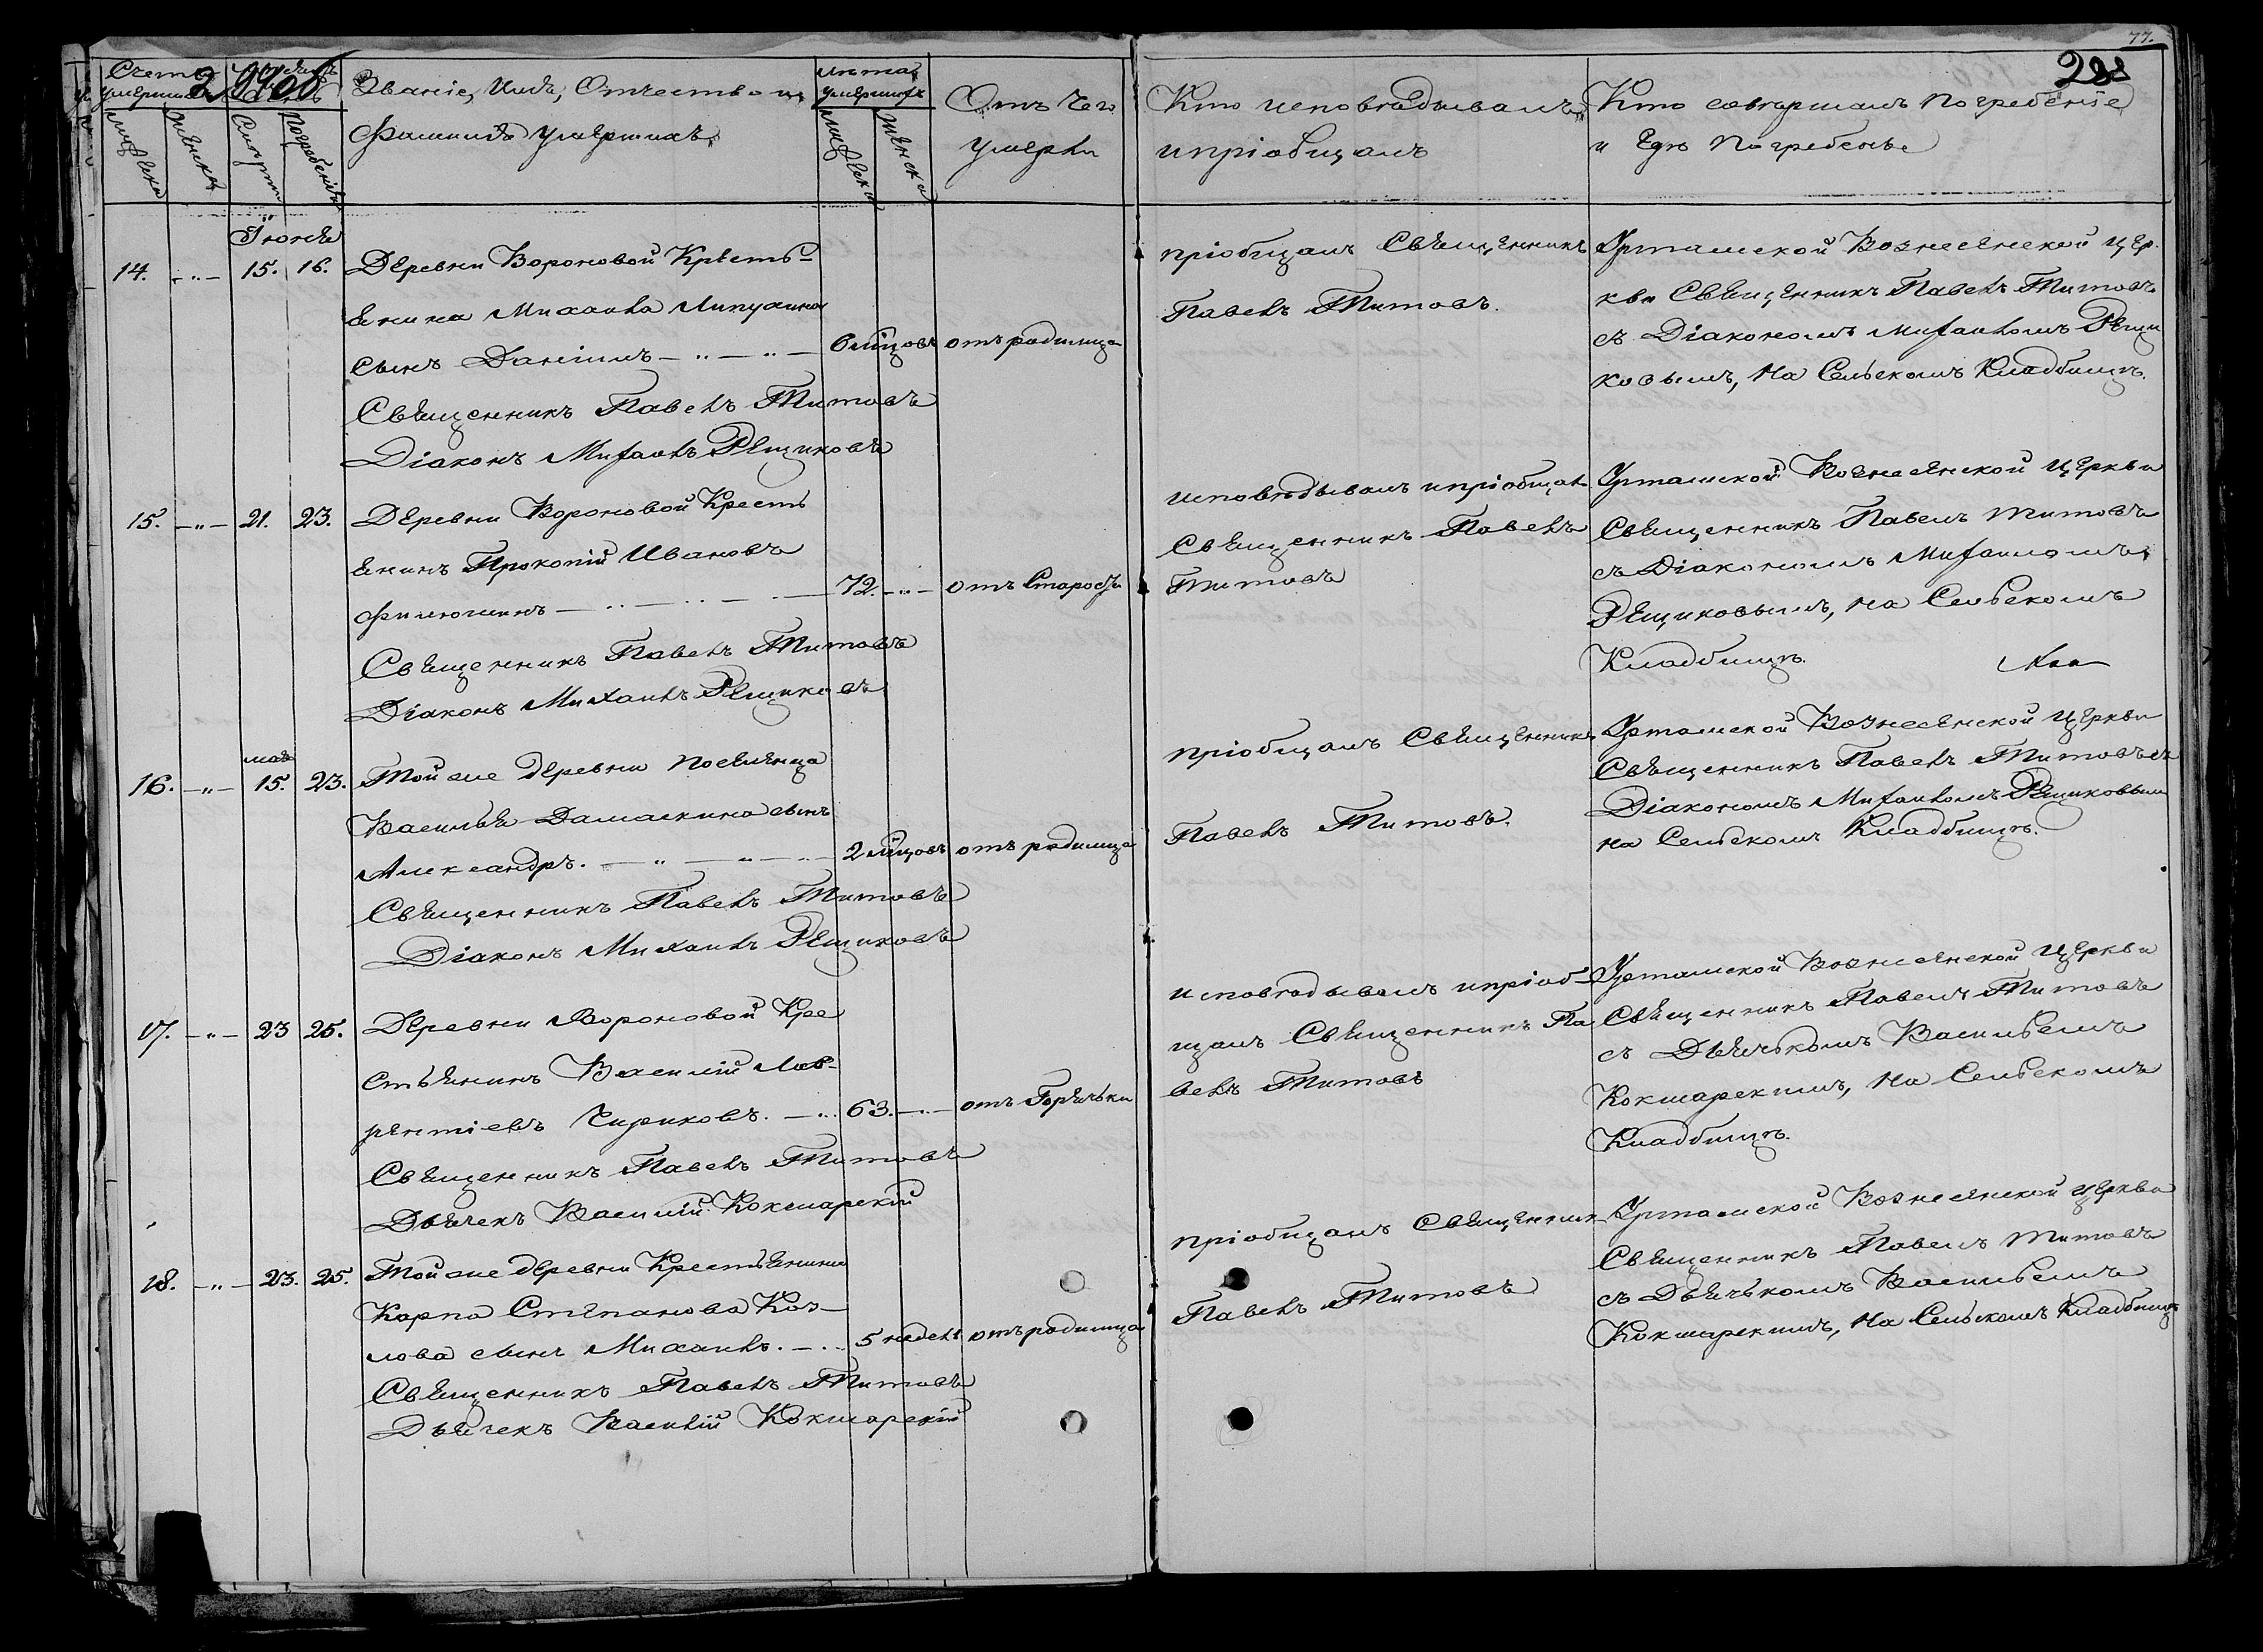 77.
288
Счетъ умершихъ
мужеска
женска
Смерти
погребенія
Званіе, Имя, Отчество и
Фамилія умершихъ.
лѣта умершихъ
мужеска
женска
Отъ чего
умерли
Кто исповѣдывалъ
и пріобщалъ
Кто совершалъ погребеніе
и гдѣ погребены
Іюня
14. —"— 15. 16.
Деревни Вороновой Кресть-
янина Михаила Липухина
сынъ Даніилъ —"—"—
6 мѣсцовъ
отъ родимца
Священникъ Павелъ Титовъ
Діаконъ Михаилъ Рещиковъ
пріобщалъ Священникъ
Павелъ Титовъ.
Уртамской Вознесенской цер-
кви Священникъ Павелъ Титовъ
съ Діакономъ Михаиломъ Рещи
ковымъ, на Сельскомъ Кладбищѣ.
15. —"— 21. 23.
Деревни Вороновой Кресть
янинъ Прокопій Ивановъ
Филюшинъ —"—"—
72. —"—
отъ Старости
Священникъ Павелъ Титовъ
Діаконъ Михаилъ Рещиковъ
исповѣдывалъ и пріобщал
Священникъ Павелъ
Титовъ
Уртамской Вознесенской Церкви
Священникъ Павелъ Титовъ
съ Діакономъ Михаиломъ
Рещиковымъ, на Сельскомъ
Кладбищѣ.
мая
16. —"— 15. 23.
Той же деревни поселенца
Василья Дамаскина сынъ
Александръ. —"—"—
2 мѣсцовъ
отъ родимца
Священникъ Павелъ Титовъ
Діаконъ Михаилъ Рещиковъ
пріобщалъ Священникъ
Павелъ Титовъ.
Уртамской Вознесенской Церкви
Священникъ Павелъ Титовъ съ
Діакономъ Михаиломъ Рещиковым
на Сельскомъ Кладбищѣ.
17. —"— 23 25.
Деревни Вороновой Кре
стьянинъ Василій Лав-
рентіевъ Чириковъ. —"
63. —"—
отъ Горячьки
Священникъ Павелъ Титовъ
Дьячекъ Василій Кокшарскій
исповѣдывалъ и пріоб-
щалъ Священникъ Па
велъ Титовъ
Уртамской Вознесенской Церкви
Священникъ Павелъ Титовъ
съ Дьячькомъ Васильемъ
Кокшарскимъ, на Сельскомъ
Кладбищѣ.
18. —"— 23. 25.
Той же деревни Крестьянина
Карпа Степанова Коз-
лова сынъ Михаилъ. —"
5 недель
отъ родимца
Священникъ Павелъ Титовъ
Дьячекъ Василій Кокшарскій
пріобщалъ Священник
Павелъ Титовъ
Уртамской Вознесенской Церкви
Священникъ Павелъ Титовъ
съ Дьячькомъ Васильемъ
Кокшарскимъ, на Сельскомъ Кладбищѣ